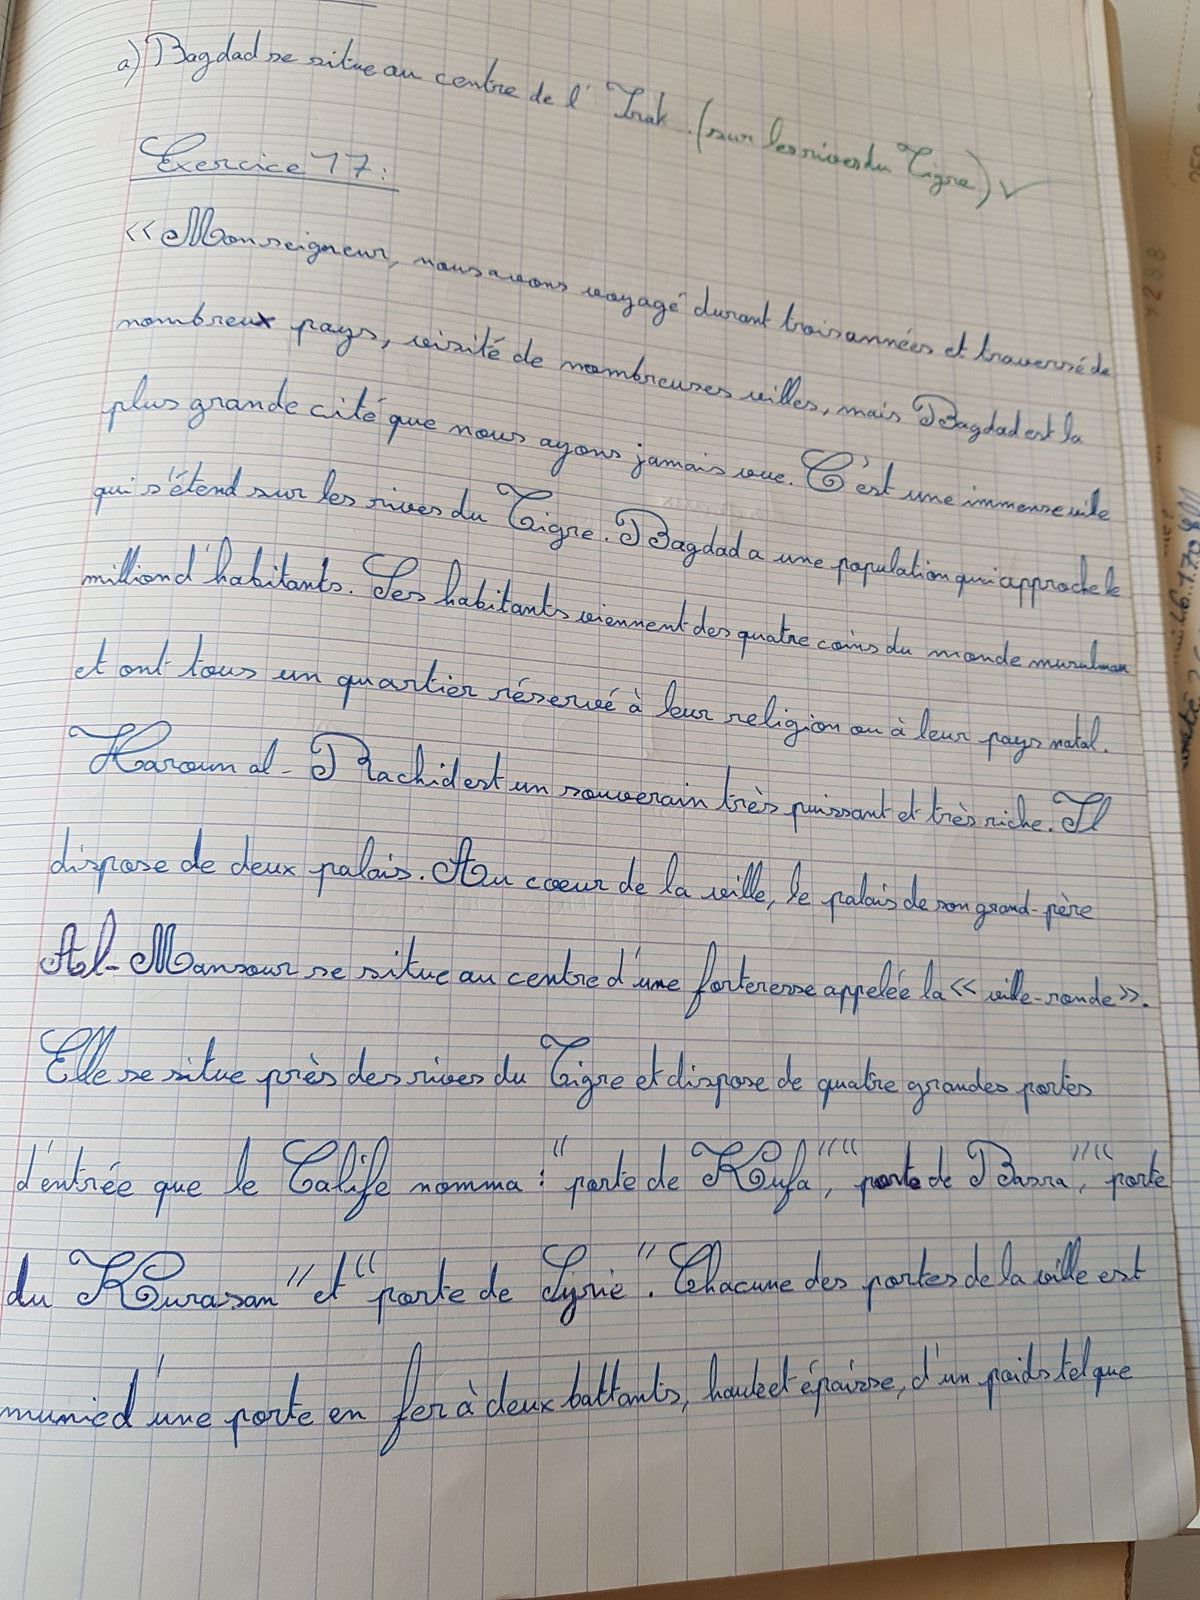 a) Bagdad se situe au centre de l'Irak. (sur les rives du Tigre) ✓
Exercice 17:
«Monseigneur, nous avons voyagé durant trois années et traversé de
nombreux pays, visité de nombreuses villes, mais Bagdad est la
plus grande cité que nous ayons jamais vue. C'est une immense ville
qui s'étend sur les rives du Tigre. Bagdad a une population qui approche le
million d'habitants. Ses habitants viennent des quatre coins du monde musulman
et ont tous un quartier réservé à leur religion ou à leur pays natal.
Haroun al-Rachid est un souverain très puissant et très riche. Il
dispose de deux palais. Au cœur de la ville, le palais de son grand-père
Al-Mansour se situe au centre d'une forteresse appelée la «ville-ronde».
Elle se situe près des rives du Tigre et dispose de quatre grandes portes
d'entrée que le Calife nomma : "porte de Kufa", "porte de Basra", "porte
du Kurasan" et "porte de Syrie". Chacune des portes de la ville est
munie d'une porte en fer à deux battants, haute et épaisse, d'un poids tel que